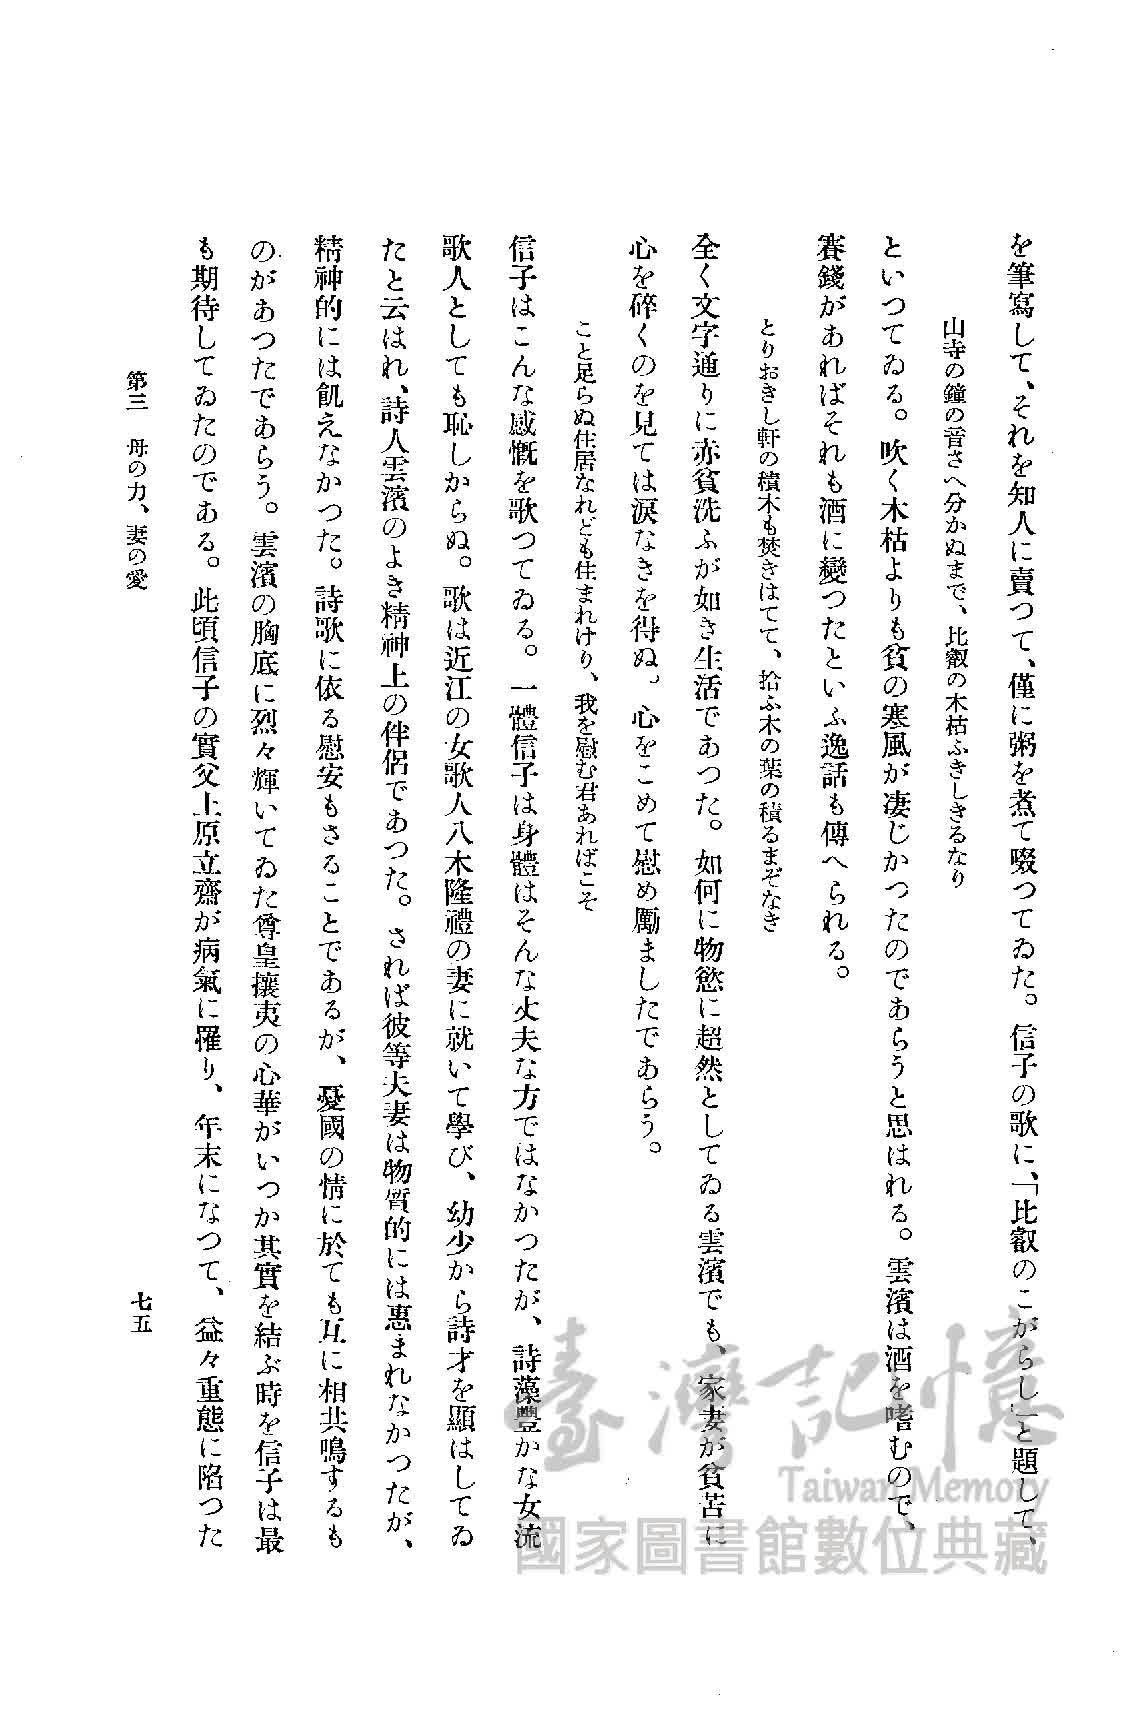 を筆寫して、それを知人に賣つて、僅に粥を煮て啜つてゐた。信子の歌に、「比叡のこがらし」と題して、
山寺の鐘の音さへ分かぬまで、比叡の木枯ふきしきるなり
といつてゐる。吹く木枯よりも貧の寒風が凄じかつたのであらうと思はれる。雲濱は酒を嗜むので、
賽錢があればそれも酒に變つたといふ逸話も傳へられる。
とりおきし軒の積木も焚きはてて、拾ふ木の葉の積るまぞなき
全く文字通りに赤貧洗ふが如き生活であつた。如何に物慾に超然としてゐる雲濱でも、家妻が貧苦に
心を碎くのを見ては涙なきを得ぬ。心をこめて慰め勵ましたであらう。
こと足らぬ住居なれども住まれけり、我を慰む君あればこそ
信子はこんな感慨を歌つてゐる。一體信子は身體はそんな丈夫な方ではなかつたが、詩藻豐かな女流
歌人としても恥しからぬ。歌は近江の女歌人八木隆禮の妻に就いて學び、幼少から詩才を顯はしてゐ
たと云はれ、詩人雲濱のよき精神上の伴侶であつた。されば彼等夫妻は物質的には惠まれなかつたが、
精神的には飢えなかつた。詩歌に依る慰安もさることであるが、憂國の情に於ても互に相共鳴するも
のがあつたであらう。雲濱の胸底に烈々輝いてゐた尊皇攘夷の心華がいつか其實を結ぶ時を信子は最
も期待してゐたのである。此頃信子の實父上原立齋が病氣に罹り、年末になつて、益々重態に陷つた
第三　母の力、妻の愛
七五
臺灣記憶
Taiwan Memory
國家圖書館數位典藏